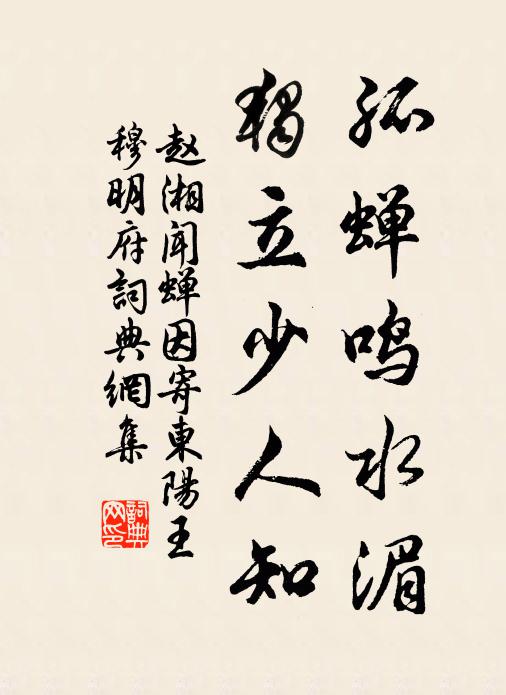 孤蝉鸣水湄
独立少人知
赵湘闻蝉因寄東陽王
穆明府詞典網集
詞典网印